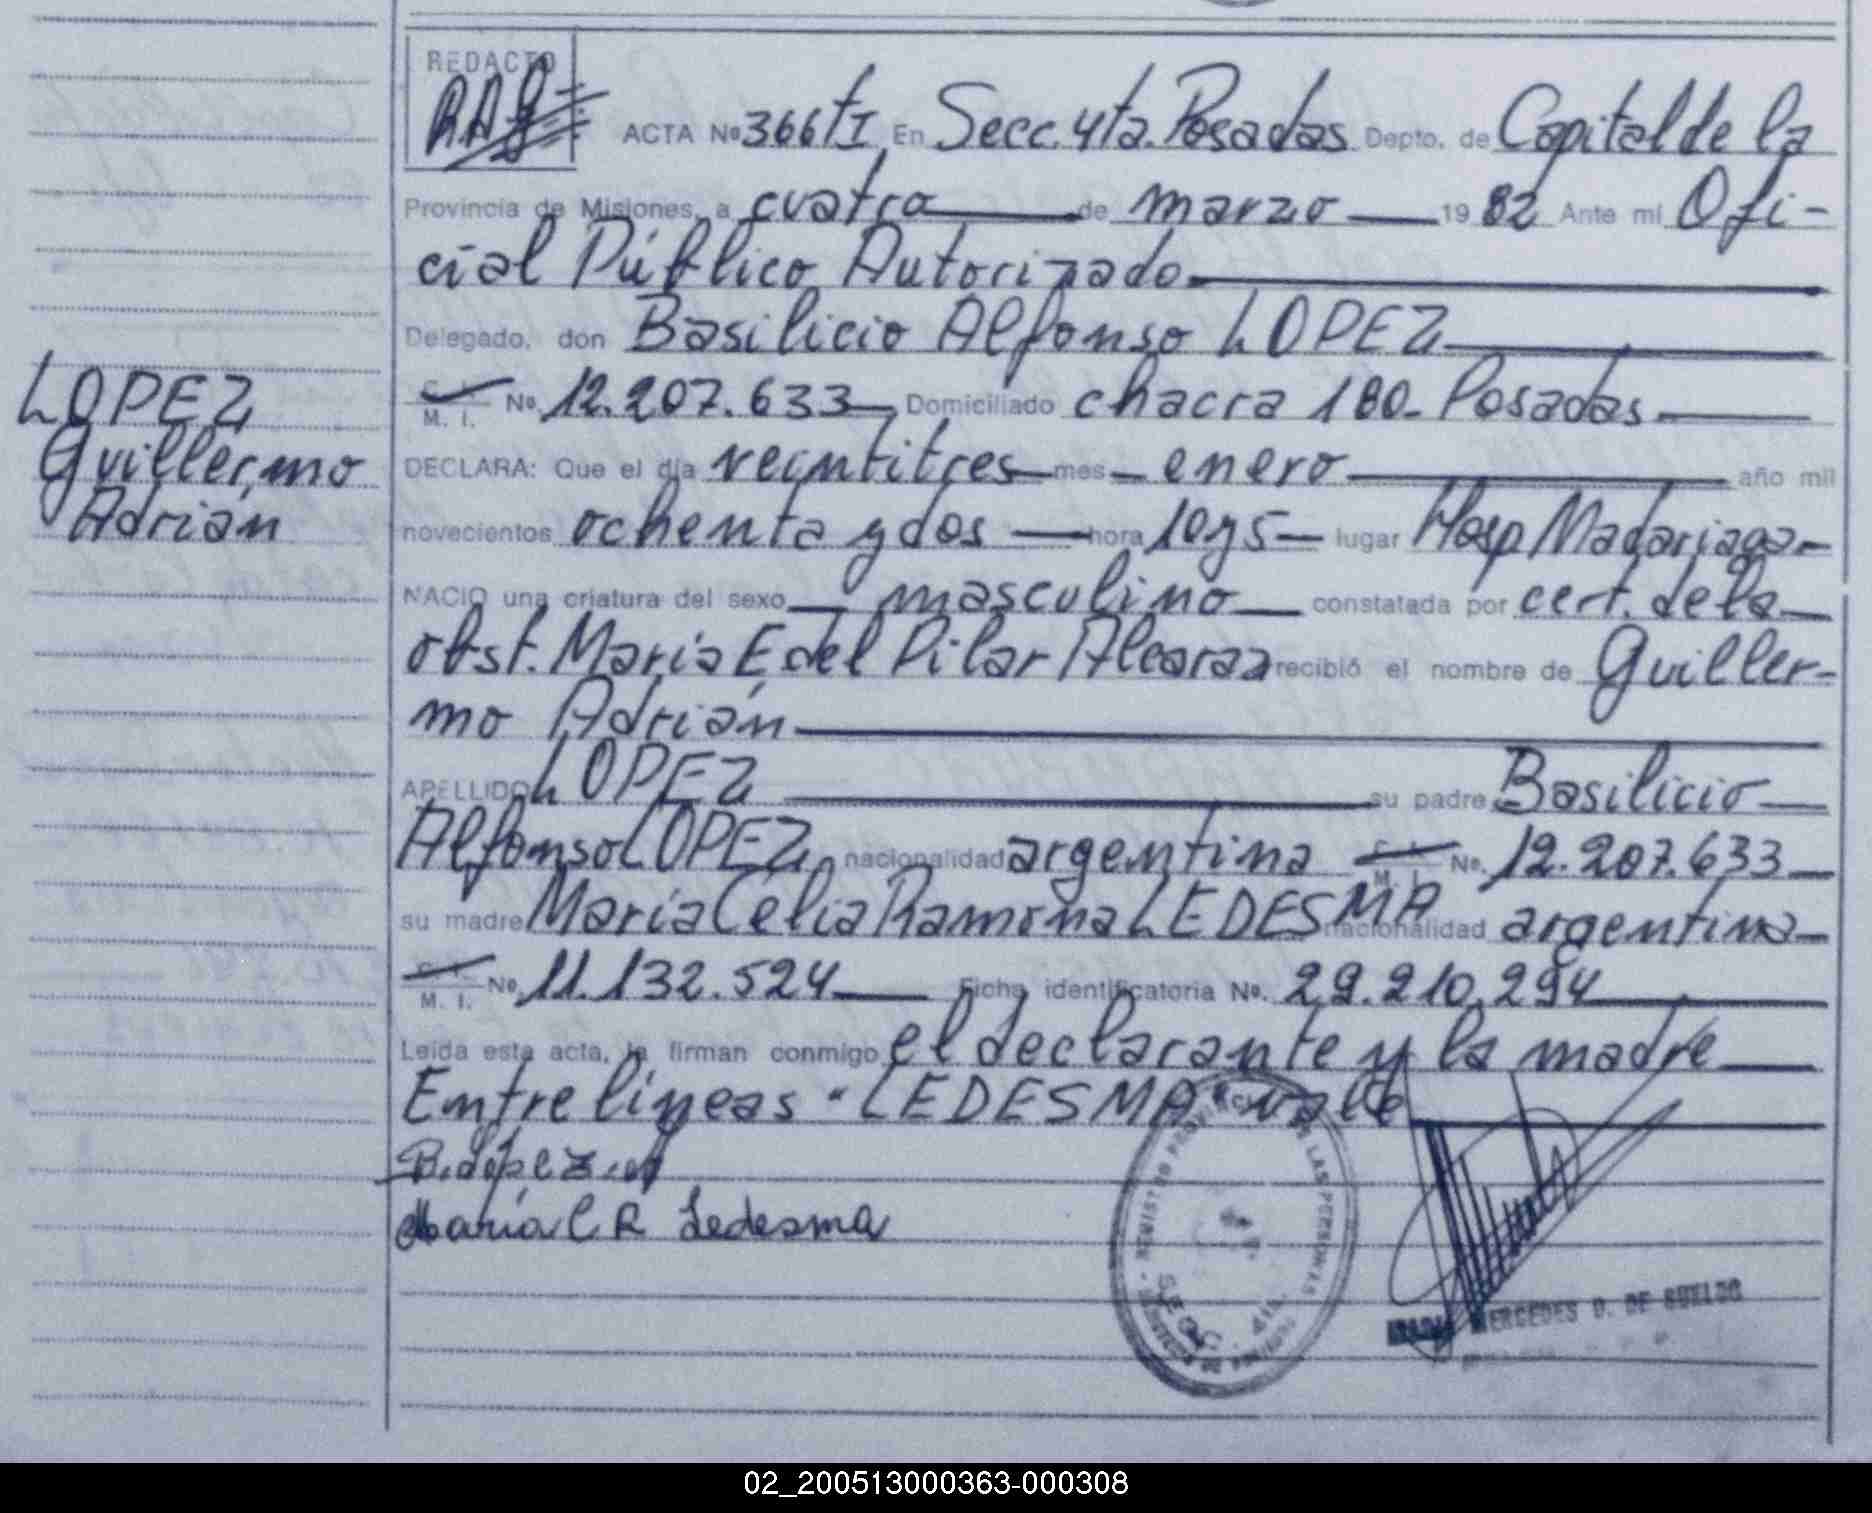 REDACTO
ACTA Nº 366 tI En Secc. 4ta. Posadas Depto. de Capital de la
Provincia de Misiones, a cuatro de marzo 1982 Ante mí Ofi-
cial Público Autorizado.
Delegado, don Basilicio Alfonso LOPEZ
M. I. Nº. 12.207.633 Domiciliado chacra 180- Posadas
LOPEZ
Guillermo
Adrián
DECLARA: Que el día veintitres mes enero año mil
novecientos ochenta y dos hora 10 y 5 lugar Hosp Madariaga-
NACIO una criatura del sexo masculino constatada por cert. de la
obst. María E del Pilar Alcaraz recibió el nombre de Guiller-
mo Adrián
APELLIDO LOPEZ su padre Basilicio
Alfonso LOPEZ nacionalidad argentina M. I. Nº. 12.207.633
su madre María Celia Ramona LEDESMA nacionalidad argentina
M. I. Nº. 11.132.524 Ficha identificatoria Nº. 29.210.294
Leída esta acta, la firman conmigo el declarante y la madre
Entre líneas "LEDESMA" vale
B. López
María C R Ledesma
REGISTRO PROVINCIAL DE LAS PERSONAS
MERCEDES D. DE
02_200513000363-000308